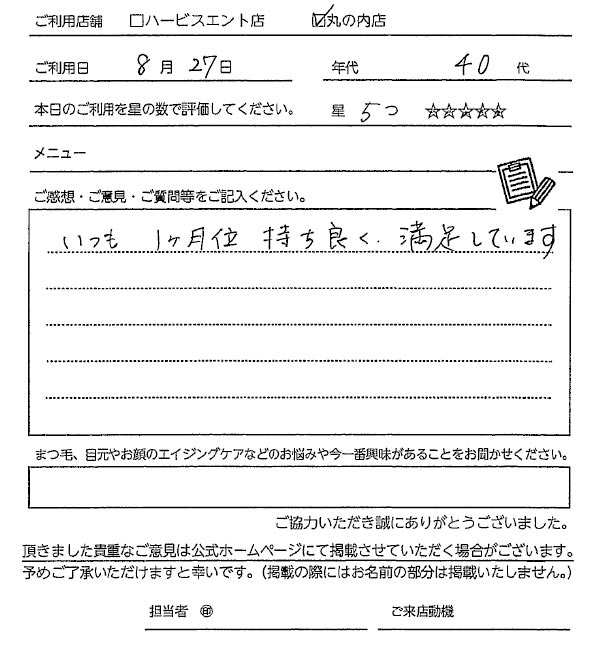 ご利用店舗 □ハービスエント店 ☑丸の内店
ご利用日 8月27日 年代 40代
本日のご利用を星の数で評価してください。 星 5つ ☆☆☆☆☆
メニュー
ご感想・ご意見・ご質問等をご記入ください。
いつも 1ヶ月位 持ち良く、満足しています
まつ毛、目元やお顔のエイジングケアなどのお悩みや今一番興味があることをお聞かせください。
ご協力いただき誠にありがとうございました。
頂きました貴重なご意見は公式ホームページにて掲載させていただく場合がございます。
予めご了承いただけますと幸いです。（掲載の際にはお名前の部分は掲載いたしません。）
担当者 ㊞ ご来店動機